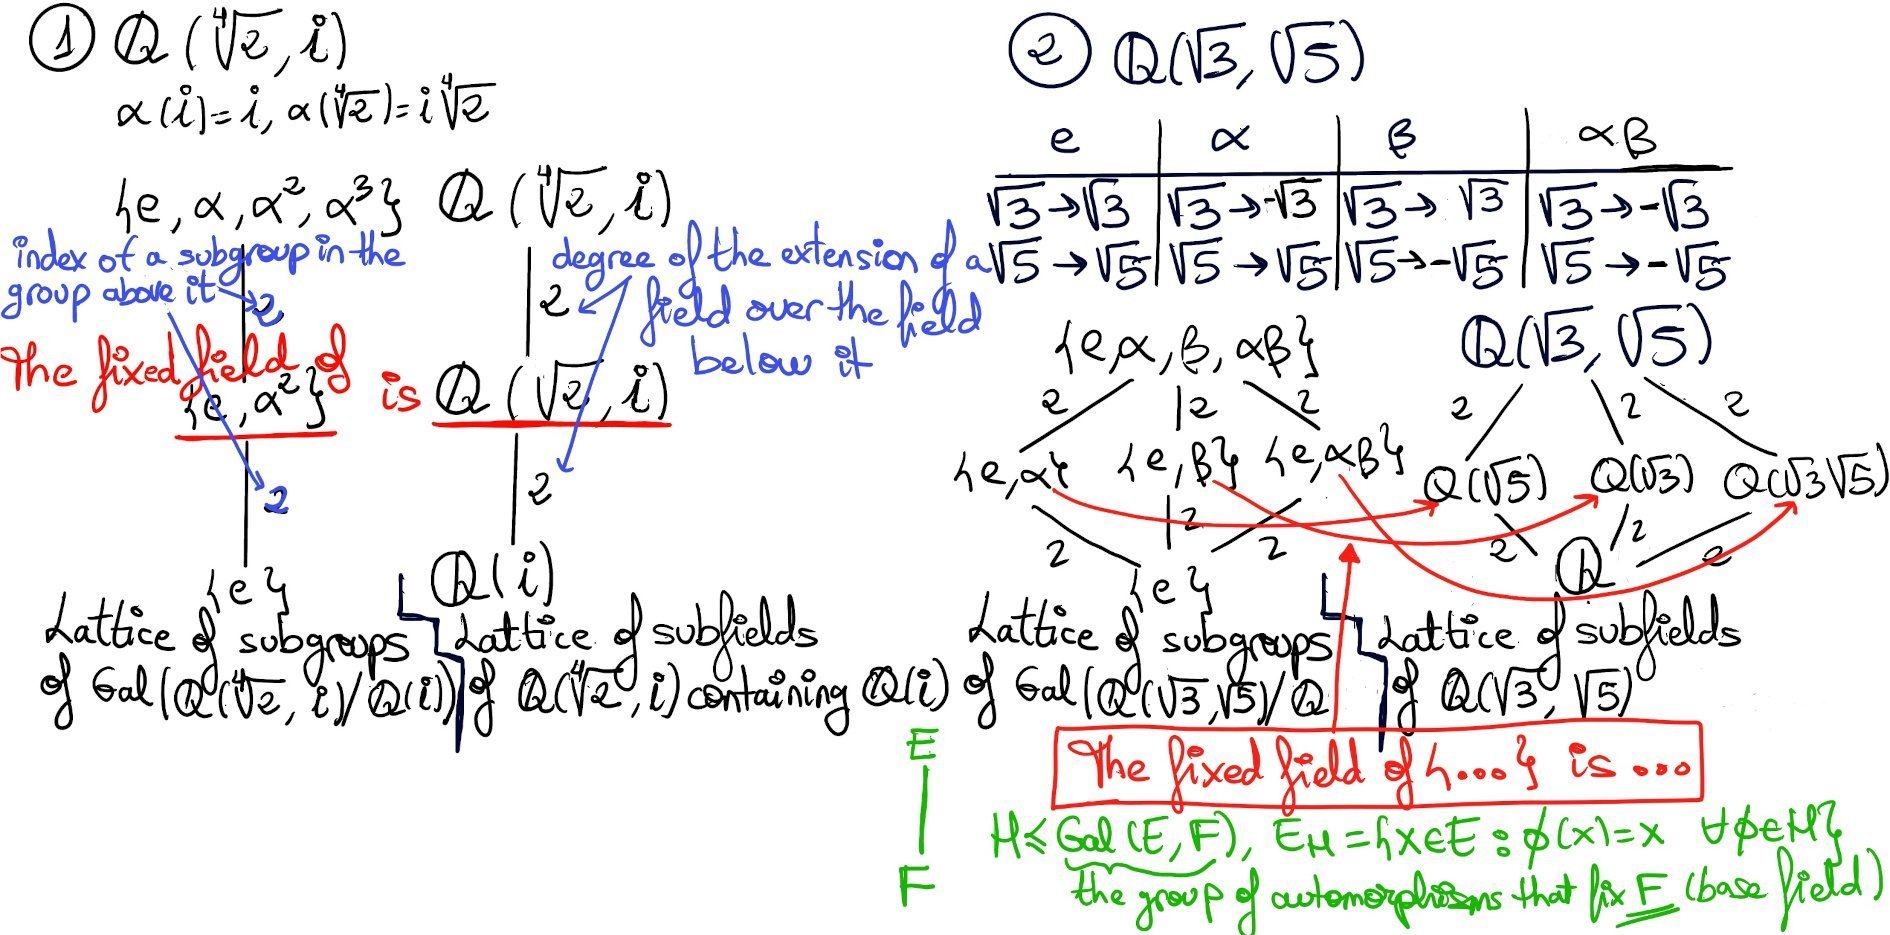 ① Q(∜2, i)
α(i)=i, α(∜2)=i∜2
{e, α, α², α³} Q(∜2, i)
index of a subgroup in the
group above it
2
degree of the extension of a
field over the field
below it
2
The fixed field of
{e, α²} is Q(√2, i)
2
2
{e} Q(i)
Lattice of subgroups
of Gal(Q(∜2, i)/Q(i))
Lattice of subfields
of Q(∜2, i) containing Q(i)
② Q(√3, √5)
e α β αβ
√3→√3 √3→-√3 √3→√3 √3→-√3
√5→√5 √5→√5 √5→-√5 √5→-√5
{e, α, β, αβ} Q(√3, √5)
2 2 2 2 2 2
{e, α} {e, β} {e, αβ} Q(√5) Q(√3) Q(√3√5)
2 2 2 2 2 2
{e} Q
Lattice of subgroups
of Gal(Q(√3,√5)/Q
Lattice of subfields
of Q(√3, √5)
The fixed field of {...} is ...
E
F
H≤Gal(E, F), E_H={x∈E : ϕ(x)=x ∀ϕ∈H}
the group of automorphisms that fix F (base field)